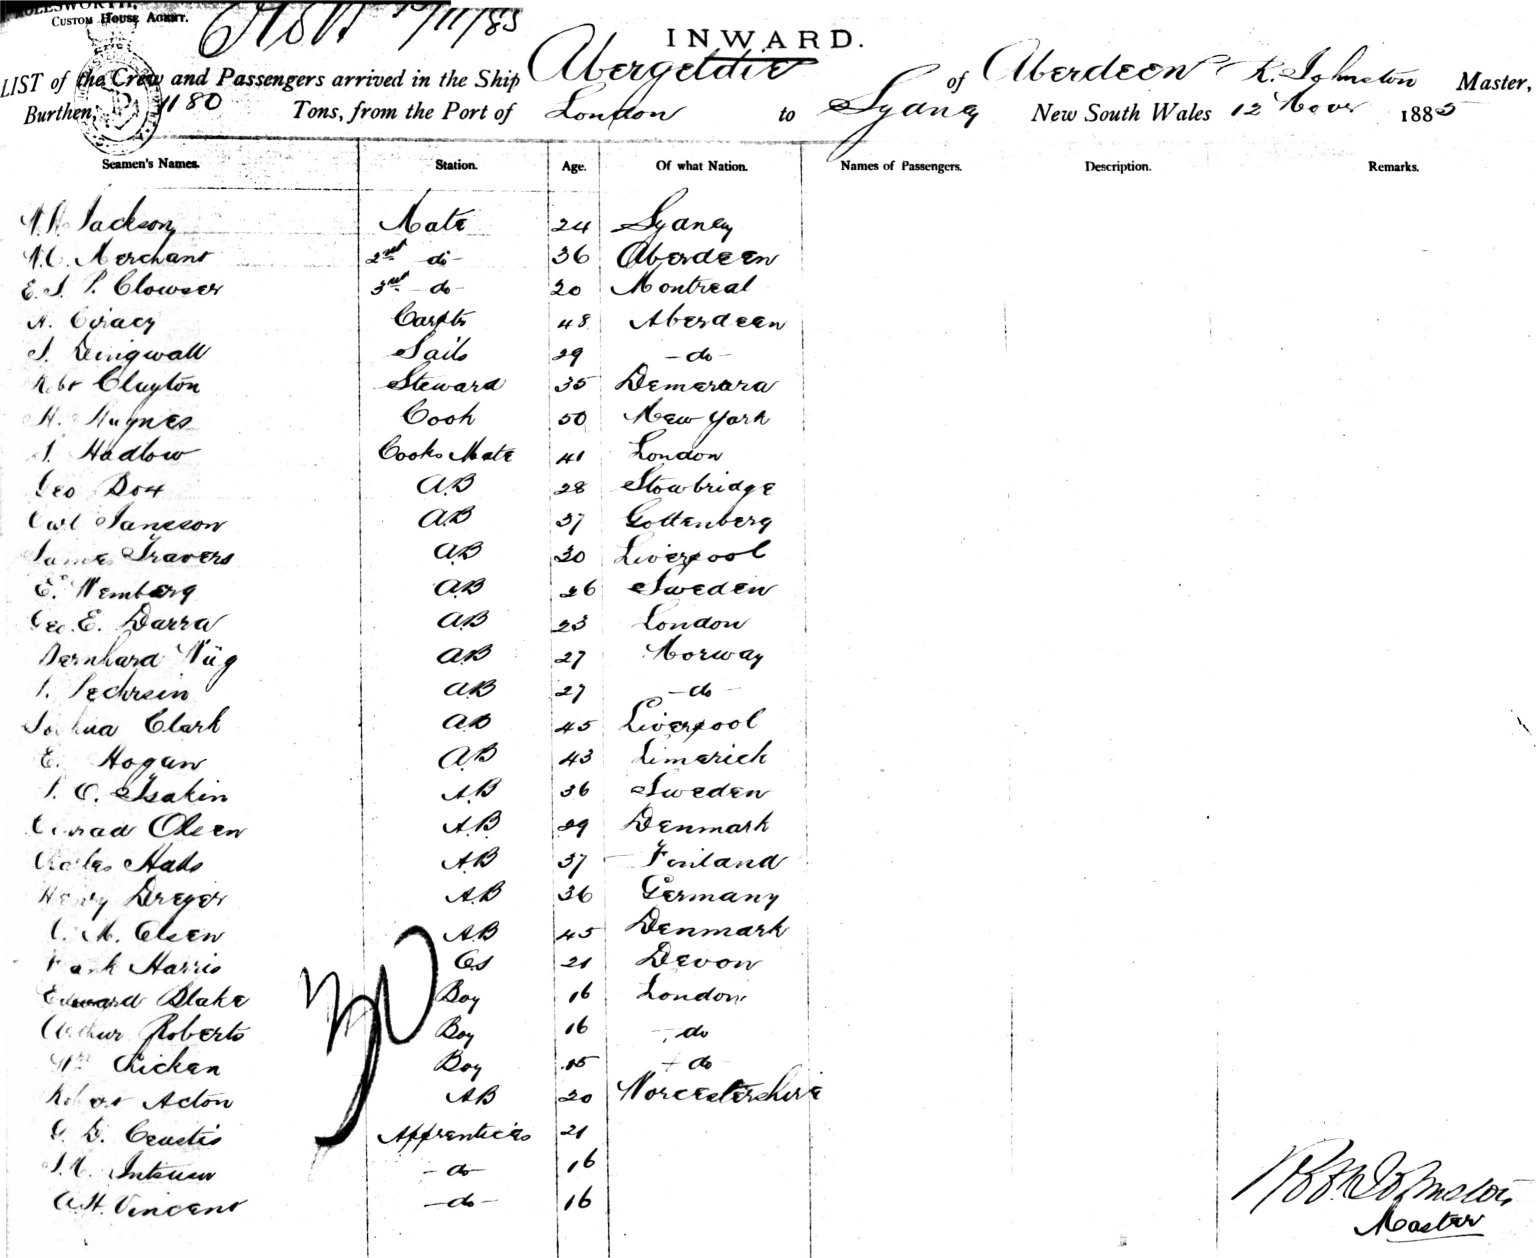 CUSTOM HOUSE AGENT.
11/83
INWARD.
LIST of the Crew and Passengers arrived in the Ship Abergeldie of Aberdeen R. Johnston Master,
Burthen, 1180 Tons, from the Port of London to Sydney New South Wales 12 Novr 1885
Seamen's Names. Station. Age. Of what Nation. Names of Passengers. Description. Remarks.
Jackson Mate 24 Sydney
Merchant 2nd do 36 Aberdeen
Clowser 3rd do 20 Montreal
Carptr 48 Aberdeen
Dingwall Sails 29 do
Robt Clayton Steward 35 Demerara
H. Haynes Cook 50 New York
Hadlow Cooks Mate 41 London
Geo Box AB 28 Stowbridge
Carl Jansson AB 37 Gottenberg
James Travers AB 30 Liverpool
E. Wemberg AB 26 Sweden
Geo. E. Darra AB 23 London
Bernhard AB 27 Norway
AB 27 do
Joshua Clark AB 45 Liverpool
E. Hogan AB 43 Limerick
O. Isakin AB 36 Sweden
Conrad Olsen AB 29 Denmark
Charles AB 37 Finland
Henry Dreyer AB 36 Germany
M. Olsen AB 45 Denmark
Frank Harris OS 21 Devon
Edward Blake Boy 16 London
Arthur Roberts Boy 16 do
Wm Chicken Boy 15 do
Robert Acton AB 20 Worcestershire
Apprentices 21
do 16
A.H. Vincent do 16
30
Johnston
Master